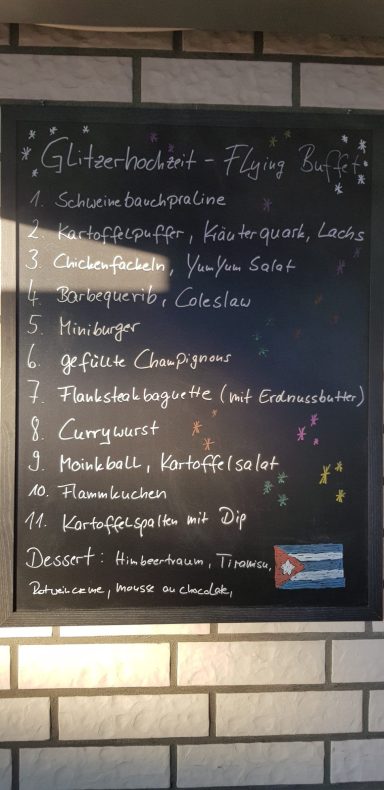 Glitzerhochzeit - Flying Buffet
1. Schweinebauchpraline
2. Kartoffelpuffer, Kräuterquark, Lachs
3. Chickenfackeln, YumYum Salat
4. Barbequerib, Coleslaw
5. Miniburger
6. gefüllte Champignons
7. Flanksteakbaguette (mit Erdnussbutter)
8. Currywurst
9. Moinkball, Kartoffelsalat
10. Flammkuchen
11. Kartoffelspalten mit Dip
Dessert: Himbeertraum, Tiramisu,
Rotweincreme, mousse au chocolate,